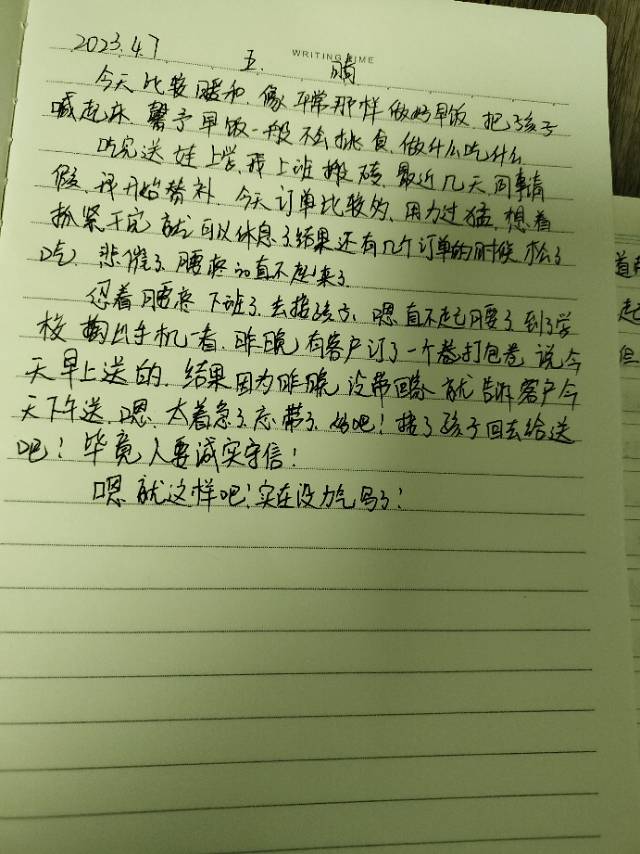 WRITING TIME
2023.4.7 五. 晴
今天比较暖和.像平常那样做好早饭.把孩子
喊起床.馨予早饭一般不会挑食.做什么吃什么.
吃完送娃上学.我上班搬砖.最近几天.同事请
假.我开始替补.今天订单比较多.用力过猛.想着
抓紧干完就可以休息了结果还有几个订单的时候
吃.悲催了腰疼的直不起来了
忍着腰疼下班了.去接孩子.嗯直不起腰了到了学
校掏出手机一看.昨晚有客户订了一个卷打包卷说今
天早上送的.结果因为昨晚没带回家就告诉客户今
天下午送.嗯.太着急了忘带了.好吧!接了孩子回去给送
吧!毕竟人要诚实守信!
嗯就这样吧!实在没力气写了!
道
起
但